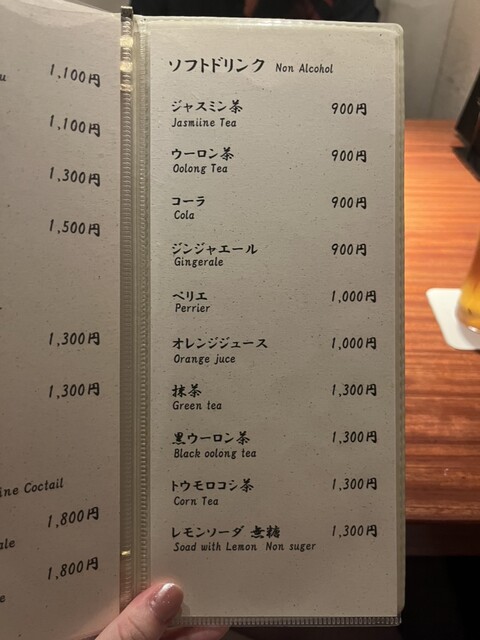 1,100円
1,100円
1,300円
1,500円
1,300円
1,300円
Coctail
1,800円
1,800円
ソフトドリンク Non Alcohol
ジャスミン茶 900円
Jasmiine Tea
ウーロン茶 900円
Oolong Tea
コーラ 900円
Cola
ジンジャエール 900円
Gingerale
ペリエ 1,000円
Perrier
オレンジジュース 1,000円
Orange juce
抹茶 1,300円
Green tea
黒ウーロン茶 1,300円
Black oolong tea
トウモロコシ茶 1,300円
Corn Tea
レモンソーダ 無糖 1,300円
Soad with Lemon Non suger